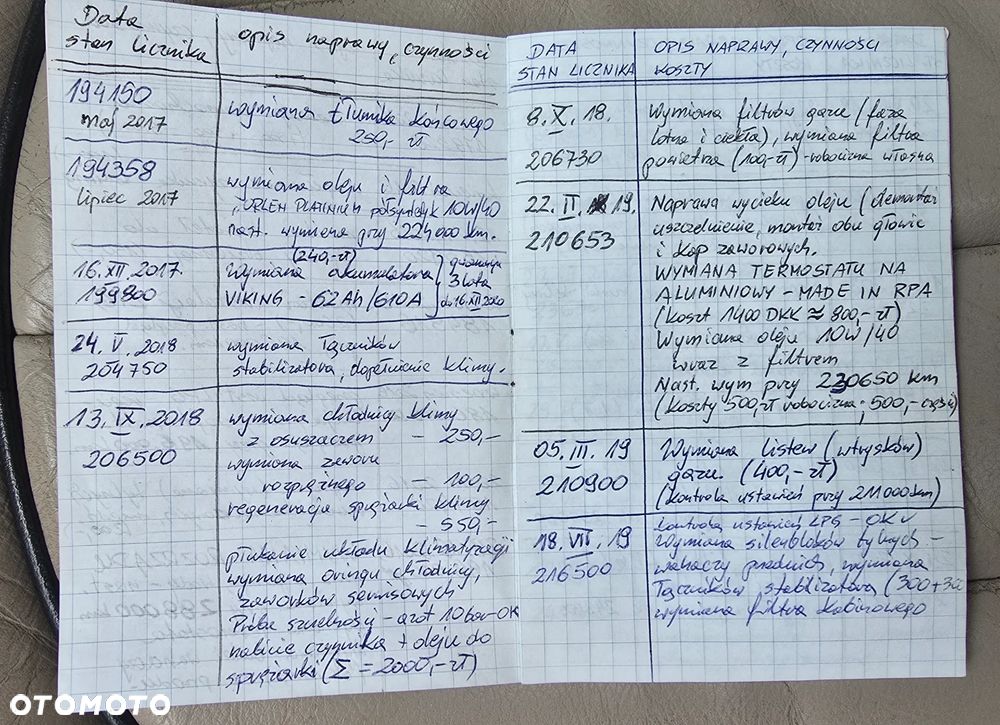 Data
stan licznika
opis naprawy, czynności
194150
maj 2017
wymiana tłumika końcowego
250,- zł
194358
lipiec 2017
wymiana oleju i filtra
"ORLEN PLATINIUM półsyntetyk 10W/40
nast. wymiana przy 224000 km.
(240,-zł)
16.XII.2017
199800
wymiana akumulatora
VIKING - 62Ah/610A
gwarancja
3 lata
do 16.XII.2020
24. V. 2018
204750
wymiana łączników
stabilizatora, dopełnienie klimy.
13. IX. 2018
206500
wymiana chłodnicy klimy
z osuszaczem - 250,-
wymiana zaworu
rozprężnego - 100,-
regeneracja sprężarki klimy
- 550,-
płukanie układu klimatyzacji
wymiana oringu chłodnicy,
zaworków serwisowych
Próba szczelności - azot 10bar-OK
nabicie czynnika + oleju do
sprężarki (Σ = 2000,-zł)
DATA
STAN LICZNIKA
OPIS NAPRAWY, CZYNNOŚCI
KOSZTY
8. X. 18.
206730
Wymiana filtrów gazu (faza
lotna i ciekła), wymiana filtra
powietrza (100,-zł) -robocizna własna
22. II. 19.
210653
Naprawa wycieku oleju (demontaż
uszczelnienie, montaż obu głowic
i kap zaworowych.
WYMIANA TERMOSTATU NA
ALUMINIOWY - MADE IN RPA
(koszt 1400 DKK ≈ 800,- zł)
Wymiana oleju 10W/40
wraz z filtrem
Nast. wym przy 230650 km
(koszty 500,zł robocizna; 500,- części)
05. III. 19
210900
Wymiana listew (wtrysków)
gazu. (400,- zł)
(kontrola ustawień przy 211000km)
18. VII. 19
216500
kontrola ustawień LPG - OK
Wymiana silenbloków tylnych -
wahaczy przednich, wymiana
łączników stabilizatora (300+300
wymiana filtra kabinowego
OTOMOTO